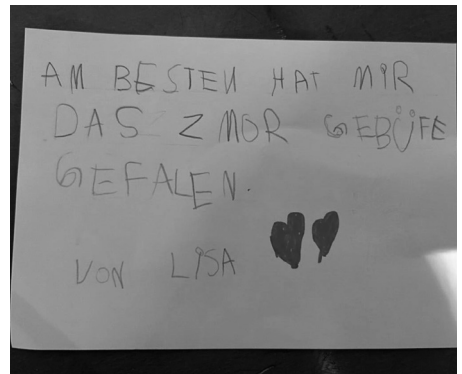 AM BESTEN HAT MIR
DAS Z MOR GEBÜFE
GEFALEN.
VON LISA